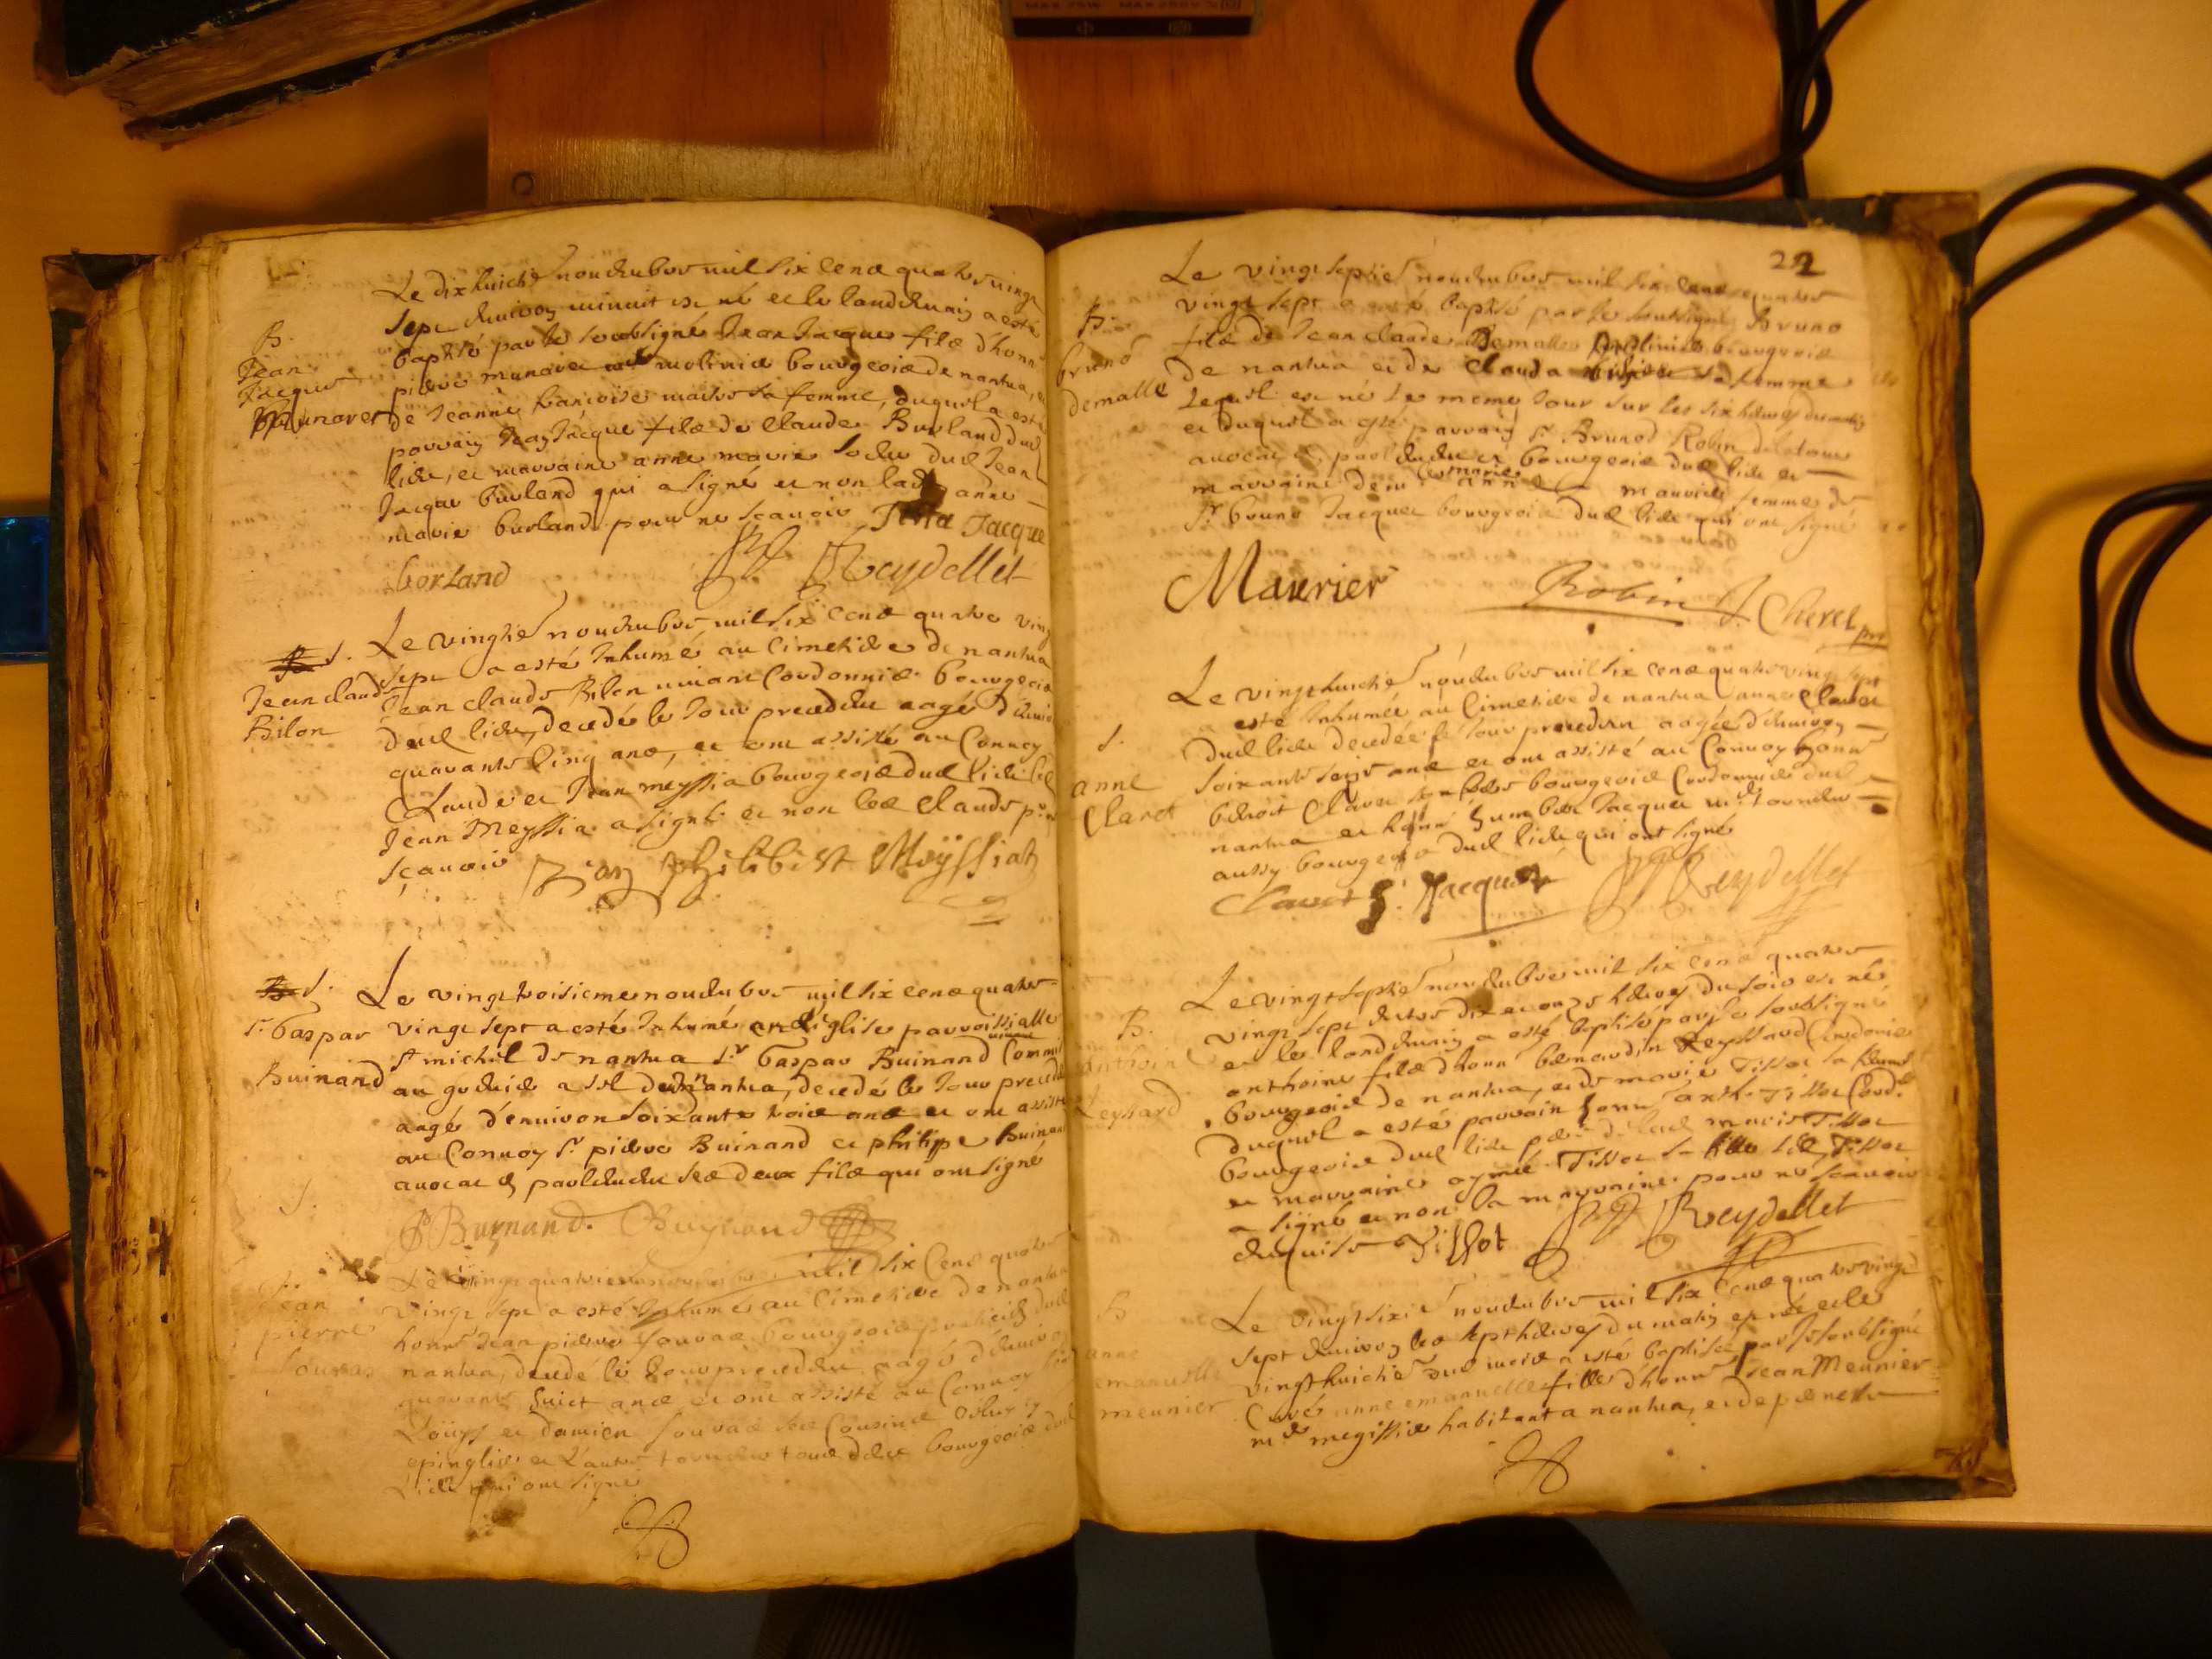 B.
Jean
Jacques
Munaret
Le dix huictie novembre mil six cens quatre vingt
sept environ minuit est né et le landemain a esté
baptisé par le soubsigné Jean Jacque filz d'honn
pierre munaret molinier bourgeois de nantua, et
de Jeanne francoise mathe sa femme, duquel a esté
parrain Jean Jacque filz de Claude Burland dud
lieu, et marraine anne marie soeur dud Jean
Jacque burland qui a signé et non lad anne
marie burland pour ne scavoir Jean Jacque
borland Reydellet
S.
Jean claude
Bilon
Le vingtie novembre mil six cens quatre vingt
sept a esté Inhumé au Cimetiere de nantua
Jean claude Bilon vivant Cordonnier bourgeois
dud lieu, decedé le Jour precedent aagé d'environ
quarante cinq ans, et ont assisté au Convoy
Claude et Jean meyssia bourgeois dud lieu led
Jean Meyssia a signé et non led Claude pr ne
sçavoir Jan philibert Meÿssiat
S.
Sr. Gaspar
Buinand
Le vingt troisieme novembre mil six cens quatre
vingt sept a esté Inhumé en l'Eglise parroissialle
St michel de nantua Sr Gaspar Buinand vivant Commis
au grenier a sel dud nantua, decedé le Jour precedent
aagé d'environ soixante trois ans et ont assisté
au Convoy Sr pierre Buinand et philippe buinand
avocat en parlement ses deux filz qui ont signé
P Buynand. Buynand
S.
Jean
pierre
souvras
Le vingt quatrieme mil six Cens quatre
vingt sept a esté Inhumé au Cimetiere de nantua
honn Jean pierre souvras bourgeois praticien dud
nantua, decedé le Jour precedent aagé d'environ
quarante huict ans et ont assisté au Convoy
Loüys et damien souvras ses Cousins
epinglier et l'autre tourneur tous deux bourgeois dud
lieu qui ont signé
22
B.
bruno
demalle
Le vingt septie novembre mil six cens quatre
vingt sept a esté baptisé par le soubsigné Bruno
filz de Jean claude Demalle molinier bourgeois
de nantua et de Clauda sa femme
lequel est né le meme Jour sur les six heures du matin
et duquel a esté parrain Sr. Bruno Robin delatour
avocat en parlement et bourgeois dud lieu et
marraine marie anne maurier femme de
Sr. bruno Jacquet bourgeois dud lieu qui ont signé
Maurier Robin J. Cheret pre
S.
anne
Claret
Le vingt huictie novembre mil six cens quatre vingt sept
esté Inhumée au Cimetiere de nantua anne Claret
dud lieu decedée le Jour precedent aagée d'environ
soixante seize ans et ont assisté au Convoy honn
benoit Claret son frere bourgeois Cordonnier dud
nantua et honn humber Jacquet md tourneur
aussy bourgeois dud lieu qui ont signé
Claret h. Jacquet Reydellet
B.
anthoine
Leyssard
Le vingt septie novembre mil six cens quatre
vingt sept entre dix et onze heures du soir est né
et le landemain a esté baptisé par le soubsigné
anthoine filz d'honn bernardin Leyssard Cordonier
bourgeois de nantua, et de marie Tissot sa femme
duquel a esté parrain honn anth. Tissot Cord.
bourgeois dud lieu pere de lad marie Tissot
et marraine aymé Tissot sa fille led Tissot
a signé et non la marraine pour ne scavoir
enquise Tissot Reydellet
B
anne
emanuelle
meunier
Le vingt sixie novembre mil six cens quatre vingt
sept environ les sept heures du matin est née et le
vingt huictie dud mois a esté baptisée par le soubsigné
Curé anne emanuelle fille d'honn Jean Meunier
md megissier habitant a nantua, et de pernette